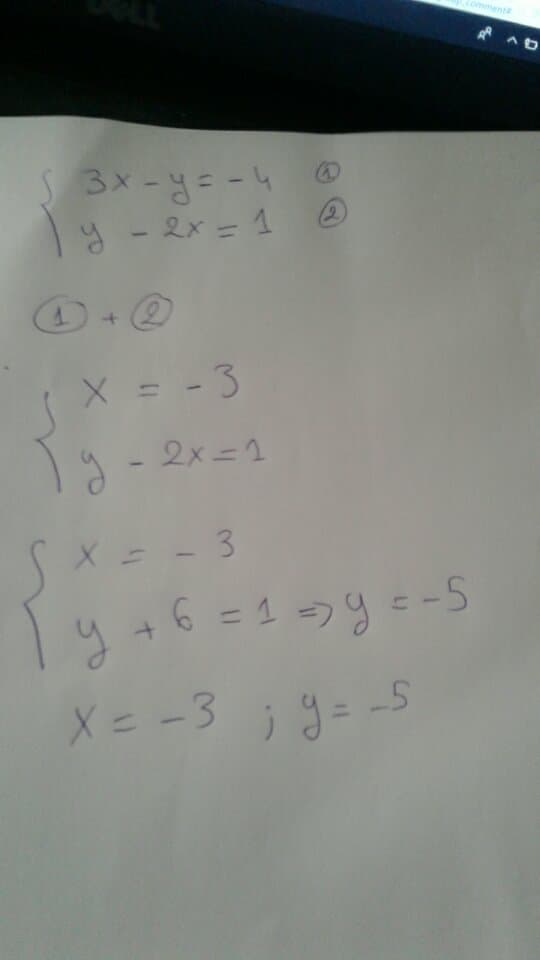 DELL
3x - y = -4 ①
y - 2x = 1 ②
① + ②
x = -3
y - 2x = 1
x = -3
y + 6 = 1 => y = -5
x = -3 ; y = -5